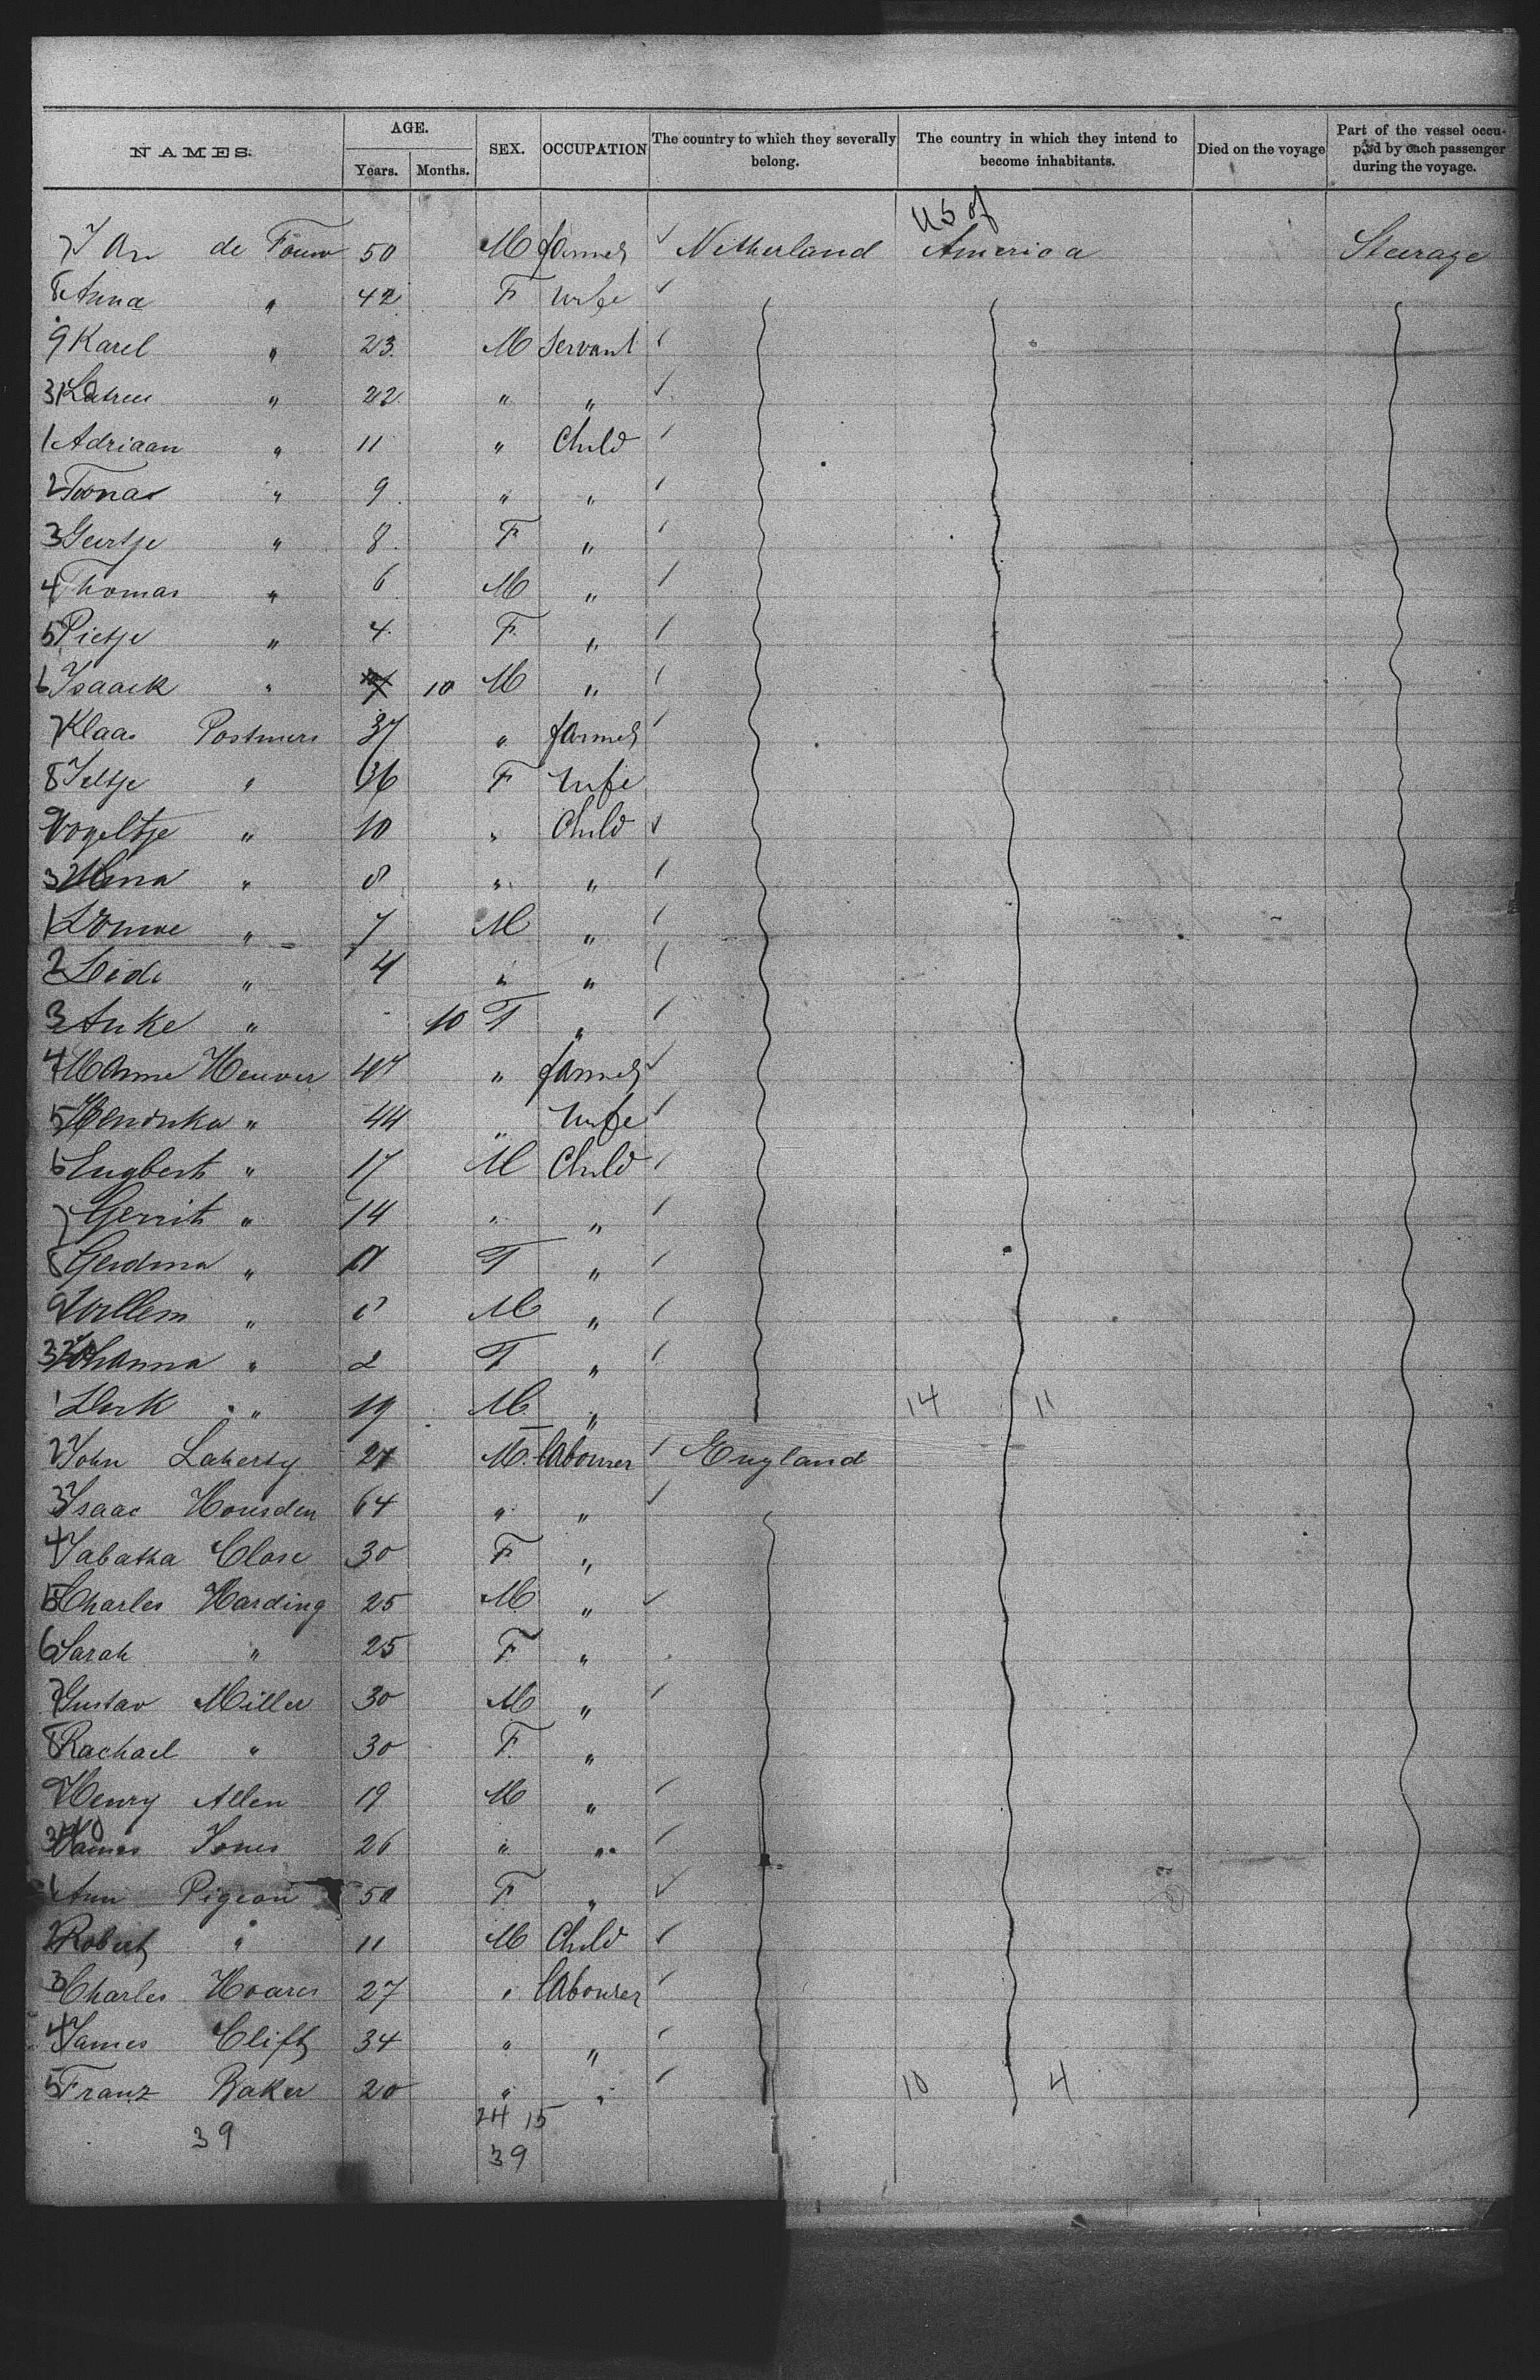 NAMES. AGE. Years. Months. SEX. OCCUPATION The country to which they severally belong. The country in which they intend to become inhabitants. Died on the voyage Part of the vessel occupied by each passenger during the voyage.
US of
7 Jan de Fouw 50 M farmer ✓ Netherland America Steerage
8 Anna " 42 F wife ✓
9 Karel " 23 M Servant ✓
22 " " ✓
1 Adriaan " 11 " Child ✓
2 Toonas " 9 " " ✓
3 Geertje " 8 F " ✓
4 Thomas " 6 M " ✓
5 Pietje " 4 F " ✓
6 Isaack " 10 M " ✓
7 Klaas Postmers 37 " farmer ✓
8 Jeltje " 36 F wife
9 Vogeltje " 10 " Child ✓
" 8 " " ✓
1 Douwe " 7 M " ✓
2 " 4 " " ✓
3 Anke " 10 F " ✓
4 Manne Heuver 47 " farmer ✓
5 Hendrika " 44 " wife ✓
6 Engbert " 17 M Child ✓
7 Gerrit " 14 " " ✓
8 Gerdina " 11 F " ✓
9 Willem " M " ✓
Johanna " 2 F " ✓
1 Derk " 19 M " 14 11
2 John Laherty M labourer ✓ England
3 Isaac Housden 64 " " ✓
4 Tabatha Close 30 F "
5 Charles Harding 25 M " ✓
6 Sarah " 25 F "
7 Gustav Miller 30 M " ✓
8 Rachael " 30 F "
9 Henry Allen 19 M " ✓
James Jones 26 " " ✓
1 Ann Pigeon 50 F " ✓
2 Robert " 11 M Child ✓
3 Charles Hoares 27 " labourer ✓
4 James Clift 34 " " ✓
5 Franz Baker 20 " " ✓ 10 4
24 15
39 39